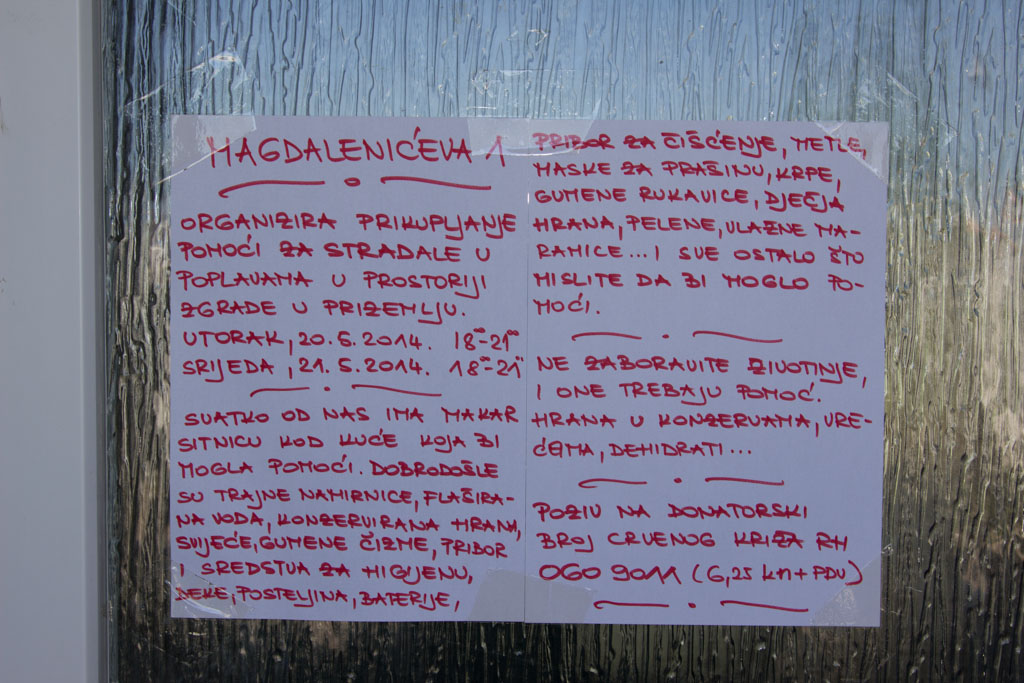 MAGDALENIĆEVA 1
ORGANIZIRA PRIKUPLJANJE
POMOĆI ZA STRADALE U
POPLAVAMA U PROSTORIJI
ZGRADE U PRIZEMLJU.
UTORAK, 20.5.2014. 18⁰⁰-21⁰⁰
SRIJEDA, 21.5.2014. 18⁰⁰-21⁰⁰
SVATKO OD NAS IMA MAKAR
SITNICU KOD KUĆE KOJA BI
MOGLA POMOĆI. DOBRODOŠLE
SU TRAJNE NAMIRNICE, FLAŠIRA-
NA VODA, KONZERVIRANA HRANA,
SVIJEĆE, GUMENE ČIZME, PRIBOR
I SREDSTVA ZA HIGIJENU,
DEKE, POSTELJINA, BATERIJE,
PRIBOR ZA ČIŠĆENJE, METLE,
MASKE ZA PRAŠINU, KRPE,
GUMENE RUKAVICE, DJEČJA
HRANA, PELENE, VLAŽNE MA-
RAMICE... I SVE OSTALO ŠTO
MISLITE DA BI MOGLO PO-
MOĆI.
NE ZABORAVITE ŽIVOTINJE,
I ONE TREBAJU POMOĆ.
HRANA U KONZERVAMA, VRE-
ĆAMA, DEHIDRATI...
POZIV NA DONATORSKI
BROJ CRVENOG KRIŽA RH
060 9011 (6,25 kn + PDV)